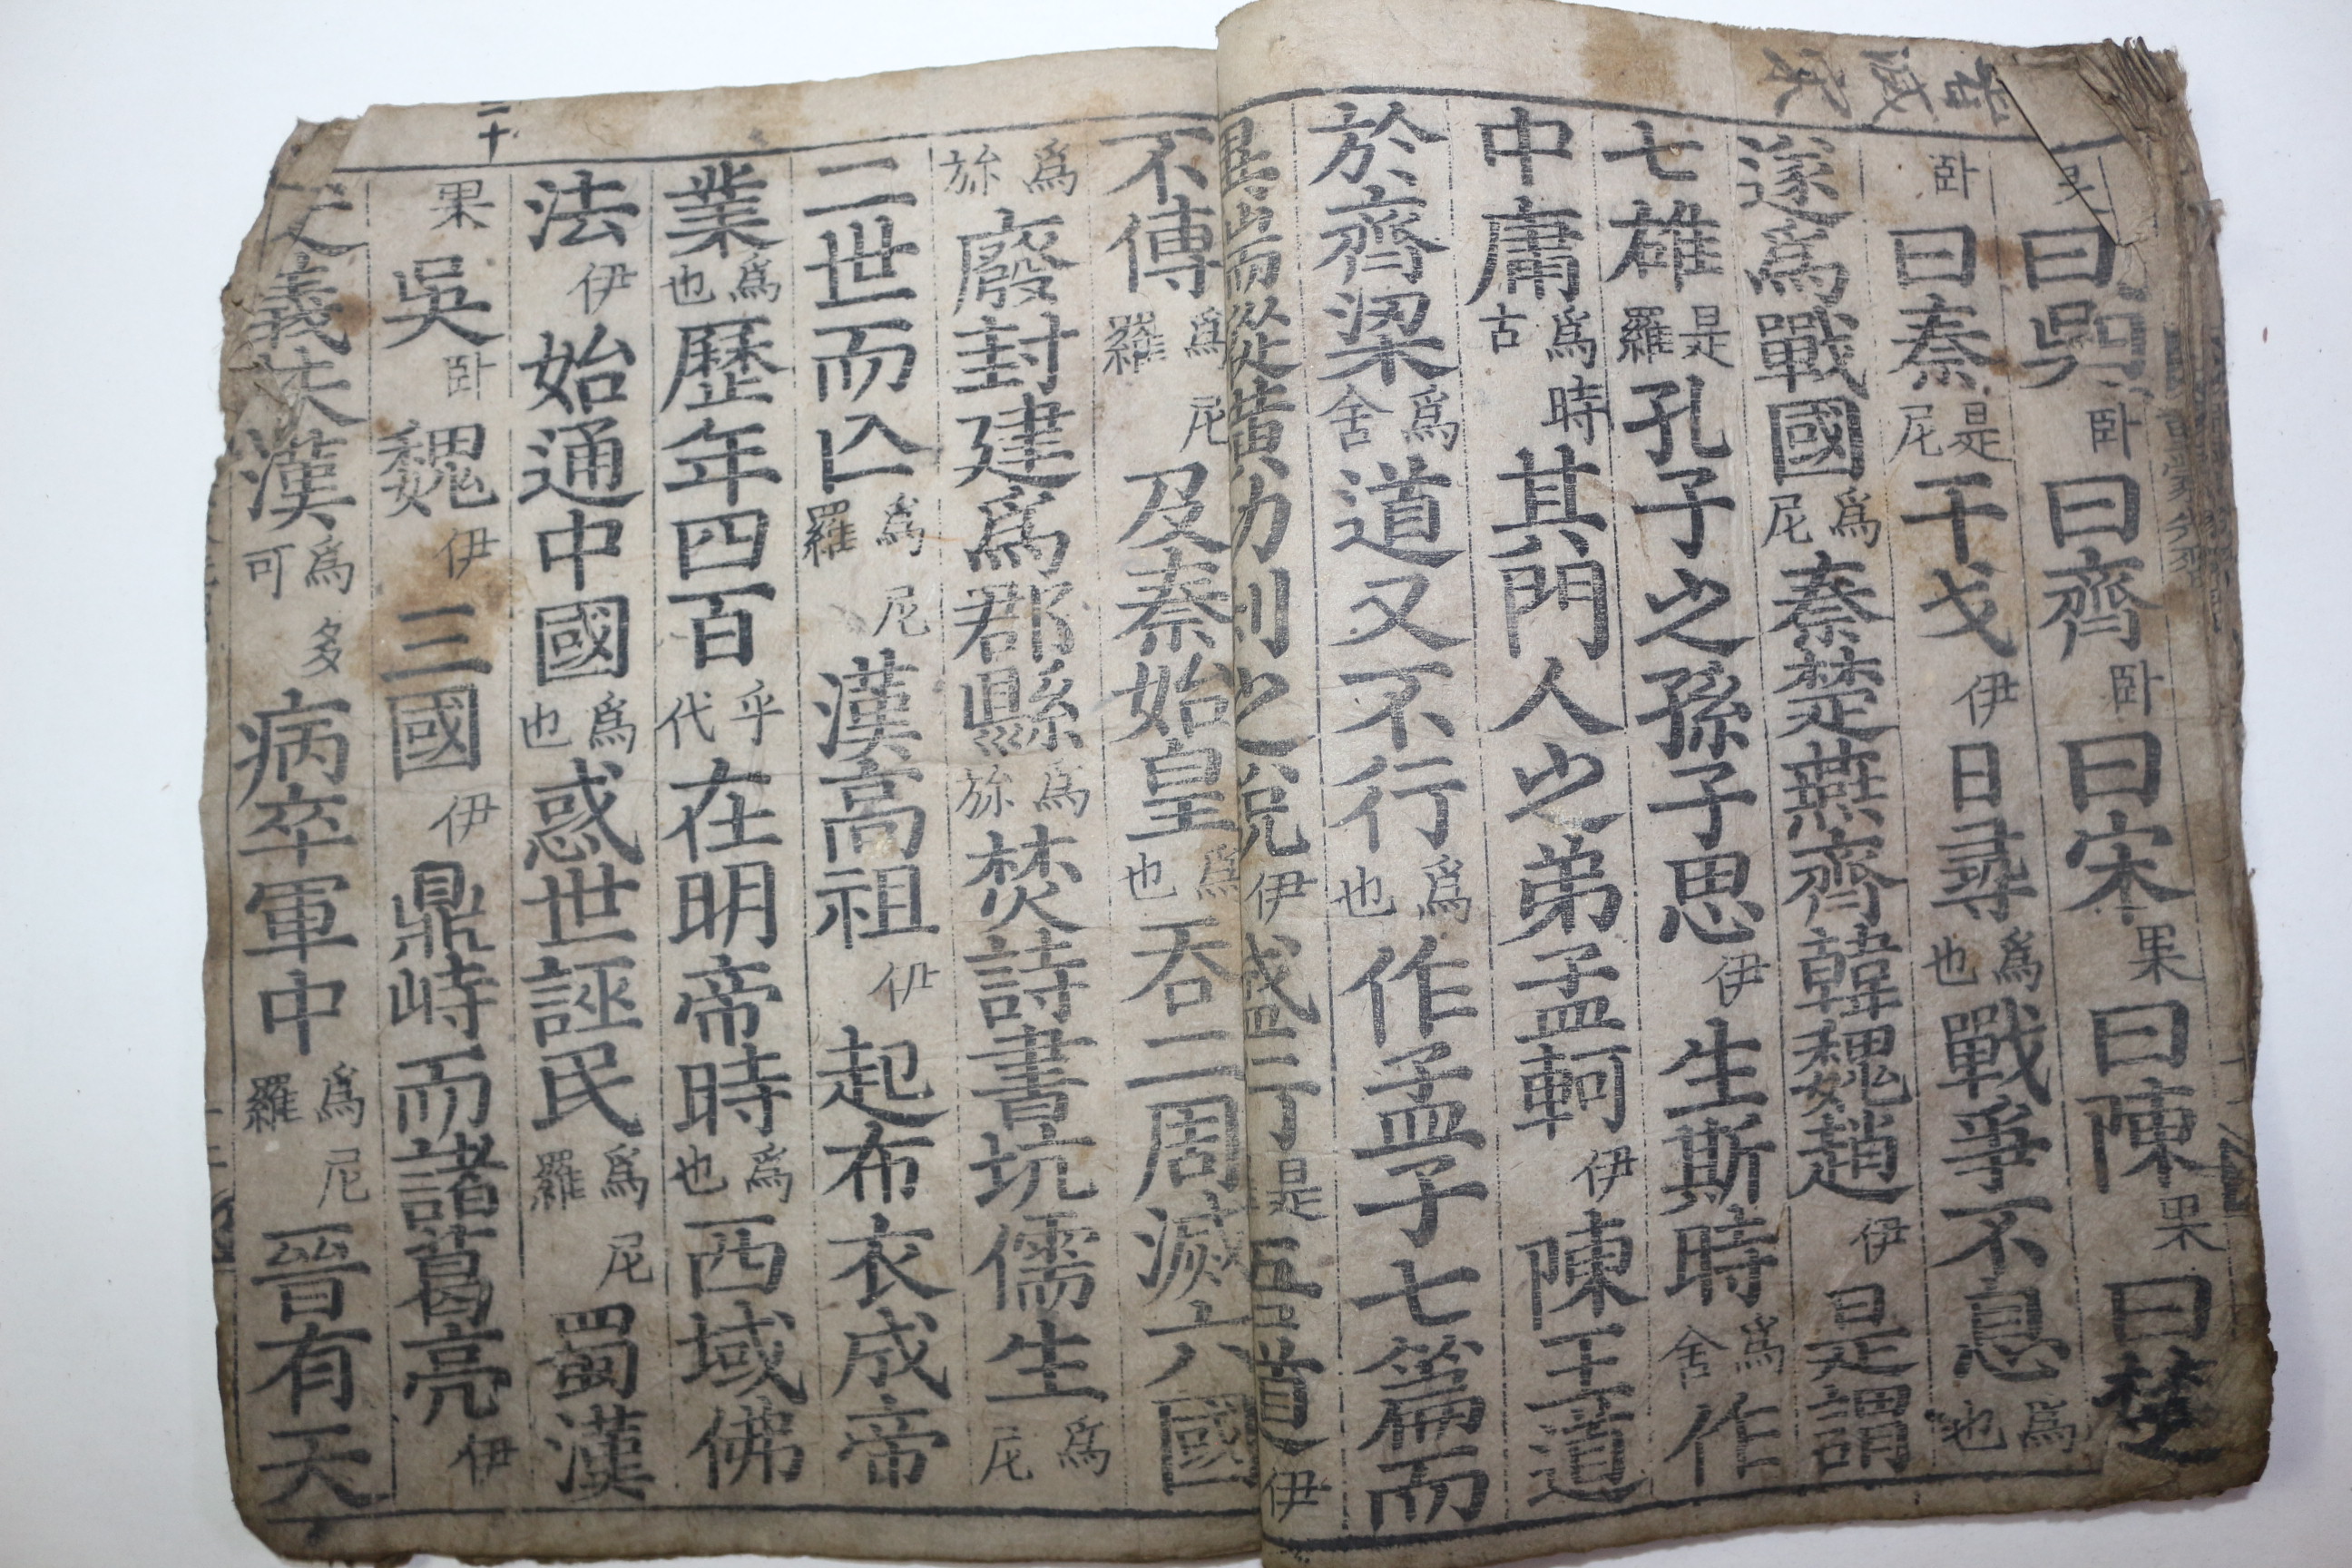 曰吳臥曰齊臥曰宋果曰陳果曰楚
臥曰秦是尼干戈伊日尋爲也戰爭不息爲也
遂爲戰國爲尼秦楚燕齊韓魏趙伊是謂
七雄是羅孔子之孫子思伊生斯時爲舍作
中庸爲古時其門人之弟孟軻伊陳王道
於齊梁爲舍道又不行爲也作孟子七篇而
異端縱橫功利之說伊盛行是尼吾道伊
不傳爲羅尼及秦始皇爲也吞二周滅六國
爲旀廢封建爲郡縣爲旀焚詩書坑儒生爲尼
二世而亾爲羅尼漢高祖伊起布衣成帝
業爲也歷年四百乎代在明帝時爲也西域佛
法伊始通中國爲也惑世誣民爲羅尼蜀漢
果吳臥魏伊三國伊鼎峙而諸葛亮伊
義扶漢爲可多病卒軍中爲羅尼晉有天
二十